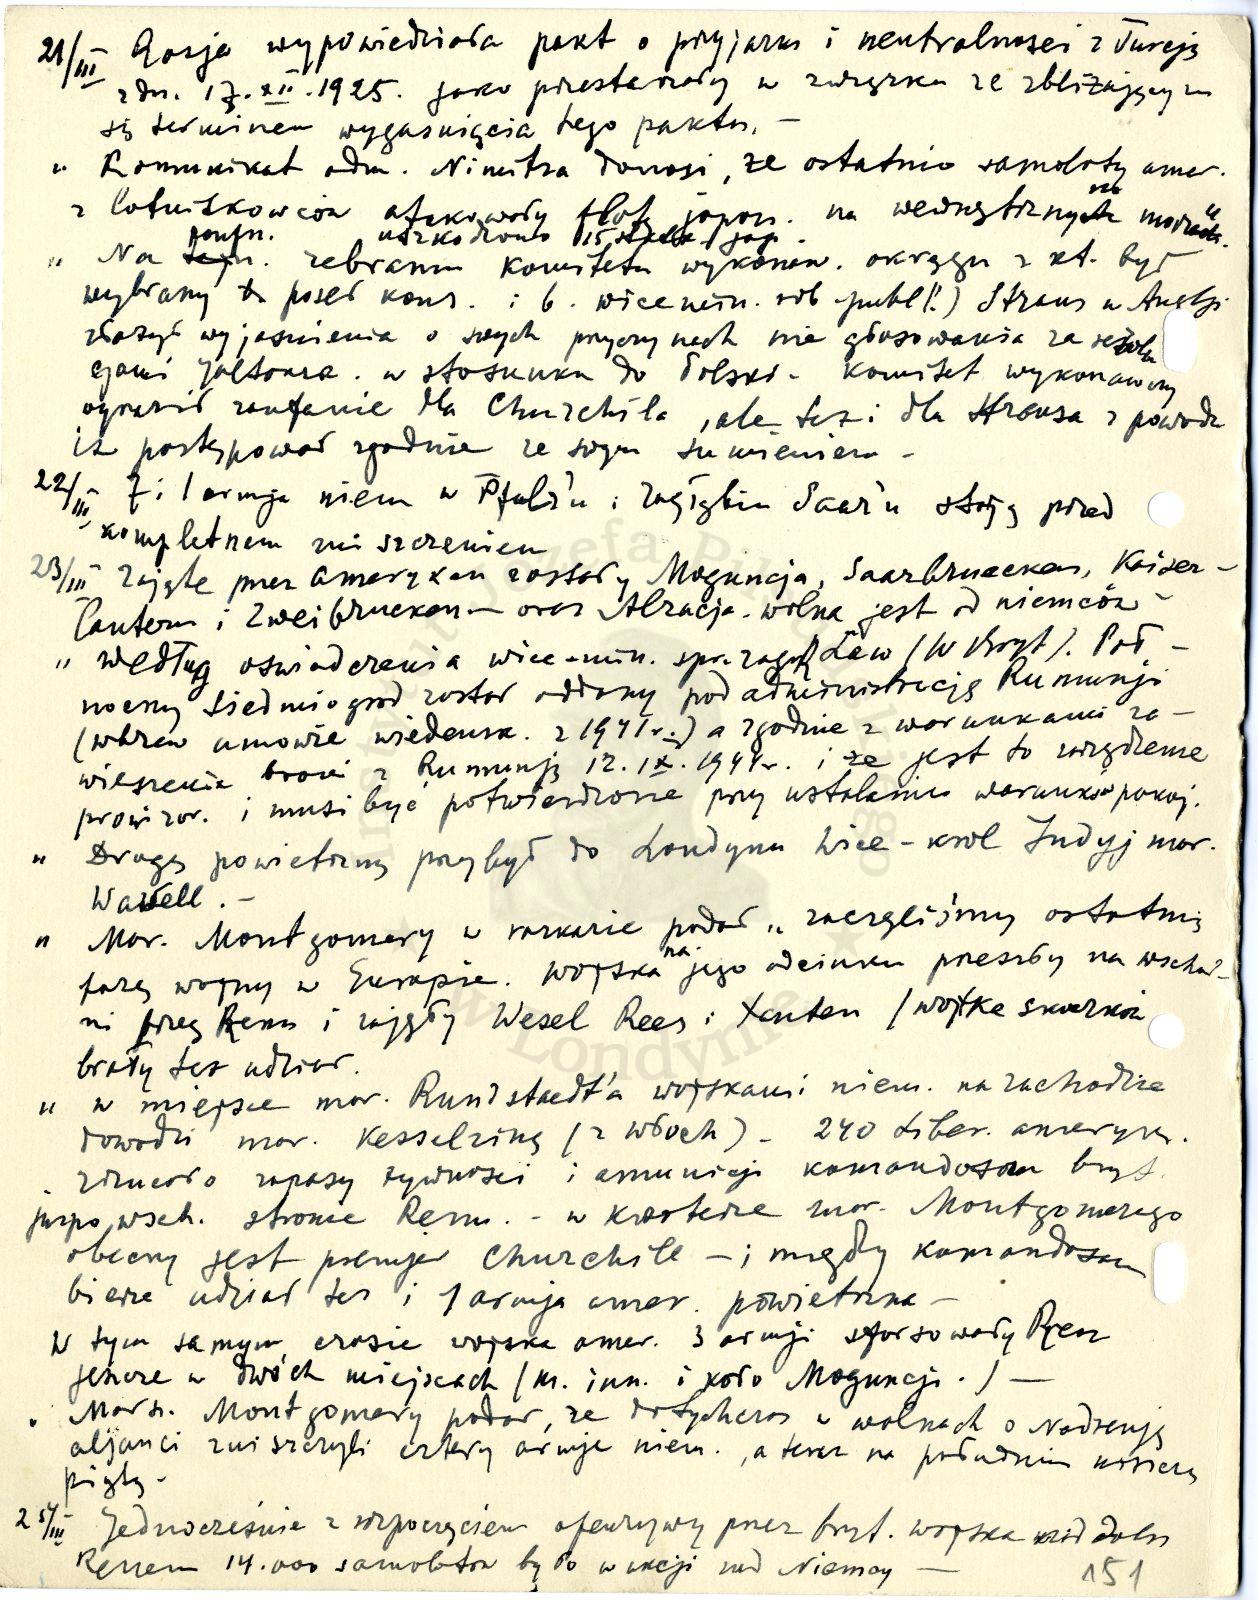 21/III Rosja wypowiedziała pakt o przyjaźni i neutralności z Turcją
z dn. 17.XII.1925. jako przestarzały w związku ze zbliżającym
się terminem wygaśnięcia tego paktu. —
" Komunikat adm. Nimitza donosi, że ostatnio samoloty amer.
z lotniskowców atakowały flotę japoń. na wewnętrznych morzach.
uszkodzono 15 jap.
poufn.
" Na zebraniu komitetu wykonaw. okręgu z kt. był
wybrany poseł kons. i b. wicemin. rob publ(!) Straus w Anglji
złożył wyjaśnienia o swych przyczynach nie głosowania za rezolu
cjami Jałtańsk. w stosunku do Polski. Komitet wykonawczy
wyraził zaufanie dla Churchila, ale też i dla Strausa z powodu
iż postępował zgodnie ze swym sumieniem —
22/III 7 i 1 armja niem w Pfalz'u i Zagłębiu Saar'u stoją przed
kompletnem zniszczeniem
23/III Zajęte przez Amerykan zostały Moguncja, Saarbruecken, Kaiser-
lautern i Zweibrucken — oraz Alzacja wolna jest od niemców —
" Według oświadczenia wice-min. spr. zagr Law (W Bryt). Pół-
nocny Siedmiogrod został oddany pod administrację Rumunji
(wbrew umowie wiedeńsk. z 1941 r.) a zgodnie z warunkami za-
wieszenia broni z Rumunją 12.IX.1944r. i że jest to zarządzenie
prowizor. i musi być potwierdzone przy ustalaniu warunków pokoj.
" Drogą powietrzną przybył do Londynu Wice-krol Indyj mar.
Wavell. —
" Mar. Montgomery w rozkazie podał „zaczęliśmy ostatnią
fazę wojny w Europie. Wojska na jego odcinku przeszły na wschod-
ni brzeg Renu i zajęły Wesel Rees i Xanten (wojska szkockie
brały też udział.
" w miejsce mar. Rundstaedt'a wojskami niem. na zachodzie
dowodzi mar. Kesselring (z Włoch) — 240 Liber. amerykań.
zrzuciło zapasy żywności i amunicji komandosom bryt.
już po wsch. stronie Renu. — w kwaterze mar. Montgomerego
obecny jest premjer Churchill — i między komandosam
bierze udział też i 1 armja amer. powietrzna —
W tym samym czasie wojska amer. 3 armji sforsowały Ren
jeszcze w dwóch miejscach (m. inn. i koło Moguncji.) —
" Marsz. Montgomery podał, że dotychczas w walkach o Nadrenję
aljanci zniszczyli cztery armje niem., a teraz na południu niszczą
piątą —
25/III Jednocześnie z rozpoczęciem ofenzywy przez bryt. wojska nad doln
Renem 14.000 samolotów było w akcji nad Niemcy —
151
Instytut Józefa Piłsudskiego
w Londynie